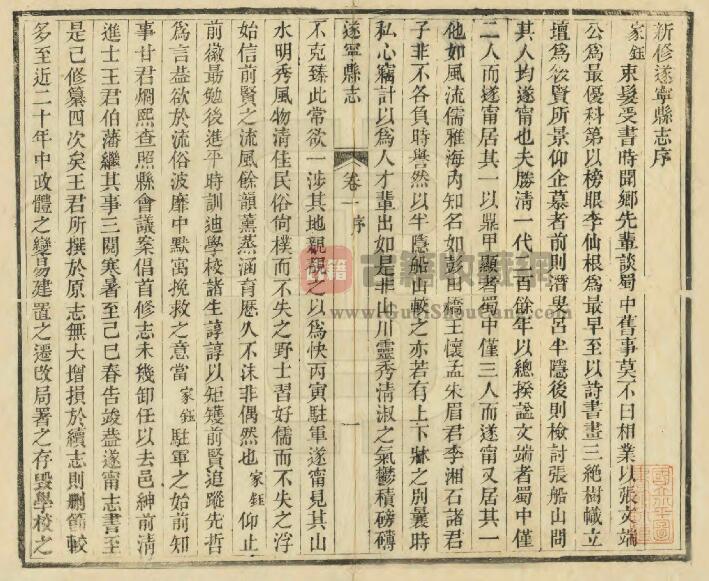 新修遂寧縣志序
家鈺束髮受書時聞鄉先輩談蜀中舊事莫不曰相業以張文端
公為最優科第以榜眼李仙根為最早至以詩書畫三絕樹幟立
壇為欽賢所景仰企慕者前則潛叟呂半隱後則檢討張船山問
其人均遂甯也夫勝清一代二百餘年以總揆諡文端者蜀中僅
二人而遂甯居其一以鼎甲顯者蜀中僅三人而遂甯又居其一
他如風流儒雅海內知名如彭田橋王懷孟朱眉君李湘石諸君
子非不各負時譽然以半隱船山較之亦若有上下牀之別曩時
私心竊計以為人才輩出如是非山川靈秀清淑之氣鬱積磅礴
遂寧縣志
卷一 序
一
不克臻此常欲一涉其地親覘之以為快丙寅駐軍遂甯見其山
水明秀風物清佳民俗尚樸而不失之野士習好儒而不失之浮
始信前賢之流風餘韻薰蒸涵育歷久不沫非偶然也家鈺仰止
前徽最勉後進平時訓迪學校諸生諄諄以矩矱前賢追蹤先哲
為言葢欲於流俗波靡中默寓挽救之意當家鈺駐軍之始前知
事甘君燜熙查照縣會議案倡首修志未幾卸任以去邑紳前清
進士王君伯藩繼其事三閱寒暑至己巳春告竣葢遂甯志書至
是已修纂四次矣王君所撰於原志無大增損於續志則刪節較
多至近二十年中政體之變易建置之遷改局署之存毀學校之
古籍收藏網
www.GuJiShouCang.com